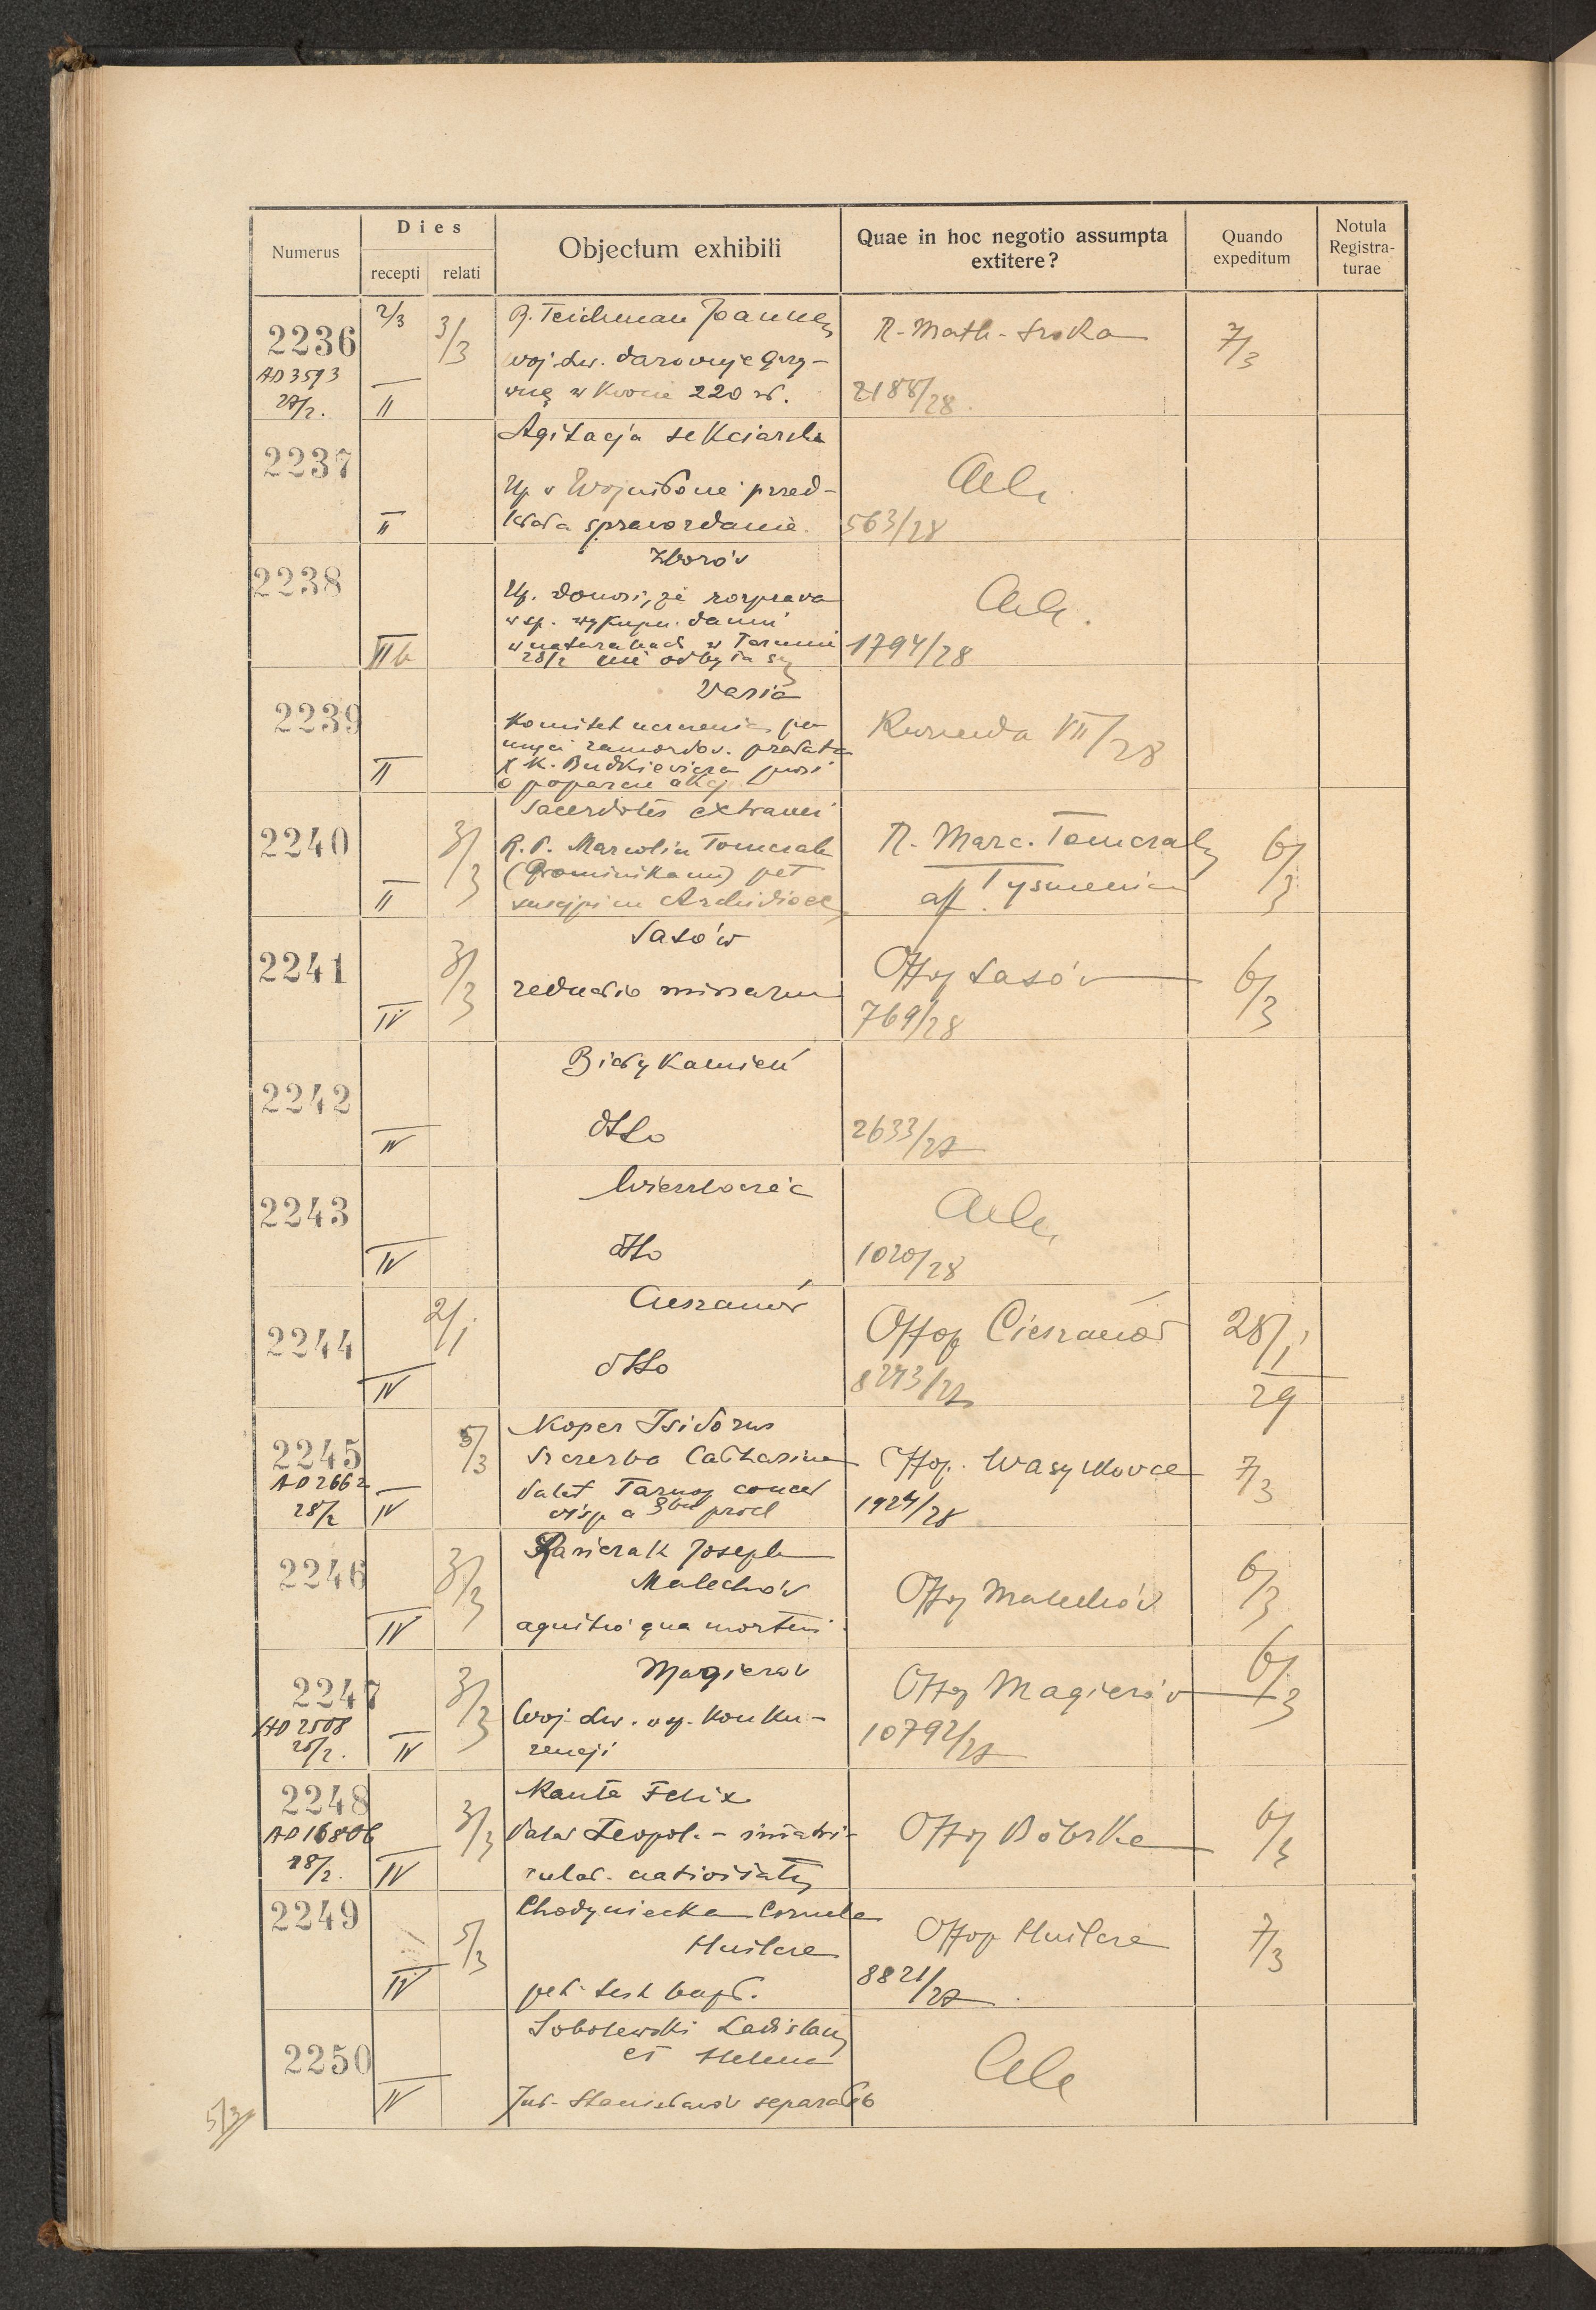 Numerus
Dies
recepti
relati
Objectum exhibiti
Quae in hoc negotio assumpta
extitere?
Quando
expeditum
Notula
Registra-
turae
2236
AD 3593
27/2.
2/3
II
3/3
R. Teichman Joannes
woj. Lw. daruje grzy-
wnę w kwocie 220 zł.
R. Math. Sroka
2188/28
7/3
2237
II
Agitacja sekciarska
Up. v Wojniłowie przed-
kłada sprawozdanie.
Ad a.
563/28
2238
II b
Zborów
Up. donosi, że rozprawa
w sp. wykupu danin
w naturaliach w Tarnun
28/2 nie odbyła się
Ad a.
1794/28
2239
II
Varia
Komitet uczczenia pa-
mięci zamordow. prałata
X K. Budkiewicza prosi
o poparcie akcji
Kurenda VII/28
2240
II
3/3
Sacerdotes extranei
R. P. Marcolin Tomczak
(Dominikanin) pet
suscipi in Archidioec
R. Marc. Tomczak
aff. Tysmenica
6/3
2241
IV
3/3
Sasów
reductio missarum
Offop Sasów
769/28
6/3
2242
IV
Biały Kamień
dtto
2633/27
2243
IV
dtto
Ad a.
1020/28
2244
IV
2/1
Cieszanów
dtto
Offop Cieszanów
8243/27
28/1
29
2245
AD 2662
28/2
IV
5/3
Koper Isidorus
Szczerba Catharina
Salet Tarnop conced
disp a 3bus procl
Offop. Wasylkowce
1924/28
7/3
2246
IV
3/3
Kasierak Joseph
Malechów
agnitio qua mortui
Offop Malechów
6/3
2247
AD 2508
25/2.
IV
3/3
Magierów
Woj. Lw. w sp. konku-
rencji
Offop Magierów
10792/27
6/3
2248
AD 16806
28/2.
IV
3/3
Kante Felix
Salat Leopol. - immatri-
culat. nativitatis
Offop Bóbrka
6/3
2249
IV
5/3
Chodyniecka Cornelia
Hnilcze
pet. test bapt.
Offop Hnilcze
8821/27
7/3
2250
IV
Sobolewski Ladislaus
et Helena
Jud. Stanisławów separatio
Ad a
5/3